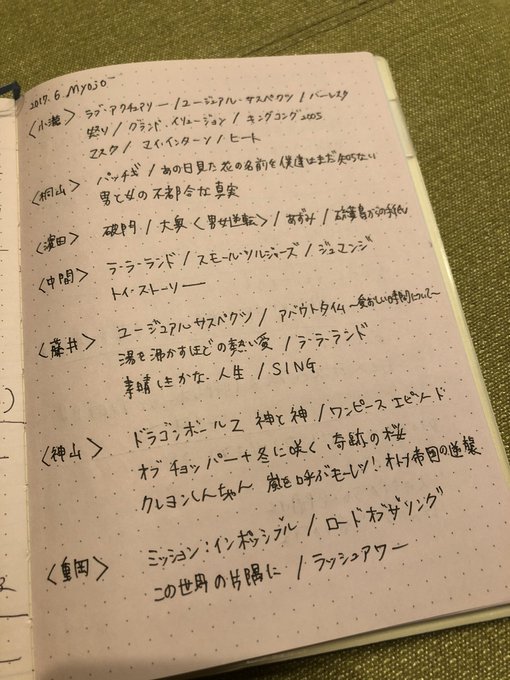 2017.6. Myojo
〈小瀧〉 ラブ・アクチュアリー / ユージュアル・サスペクツ / バーレスク
怒り / グランド・イリュージョン / キングコング2005
マスク / マイ・インターン / ヒート
〈桐山〉 パッチギ / あの日見た花の名前を僕達はまだ知らない
男と女の不都合な真実
〈濱田〉 破門 / 大奥〈男女逆転〉 / あずみ / 硫黄島からの手紙
〈中間〉 ラ・ラ・ランド / スモール・ソルジャーズ / ジュマンジ
トイ・ストーリー
〈藤井〉 ユージュアルサスペクツ / アバウトタイム 〜愛おしい時間について〜
湯を沸かすほどの熱い愛 / ラ・ラ・ランド
素晴しきかな 人生 / SING
〈神山〉 ドラゴンボールZ 神と神 / ワンピース エピソード
オブ チョッパー+ 冬に咲く、奇跡の桜
クレヨンしんちゃん 嵐を呼ぶモーレツ! オトナ帝国の逆襲
〈重岡〉 ミッション:インポッシブル / ロードオブザリング
この世界の片隅に / ラッシュアワー